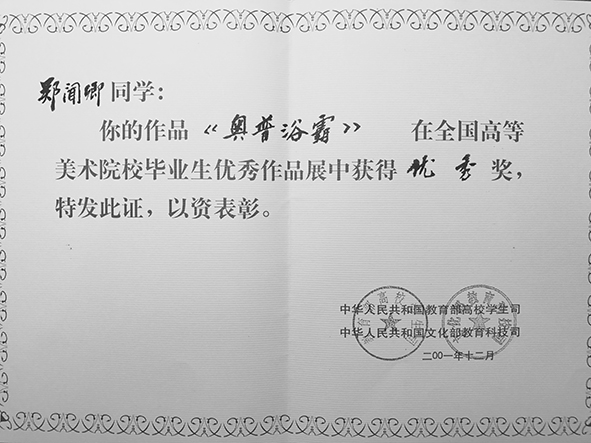 郑闻卿同学：
你的作品《奥普浴霸》 在全国高等
美术院校毕业生优秀作品展中获得优秀奖，
特发此证，以资表彰。
中华人民共和国教育部高校学生司
中华人民共和国文化部教育科技司
二00一年十二月